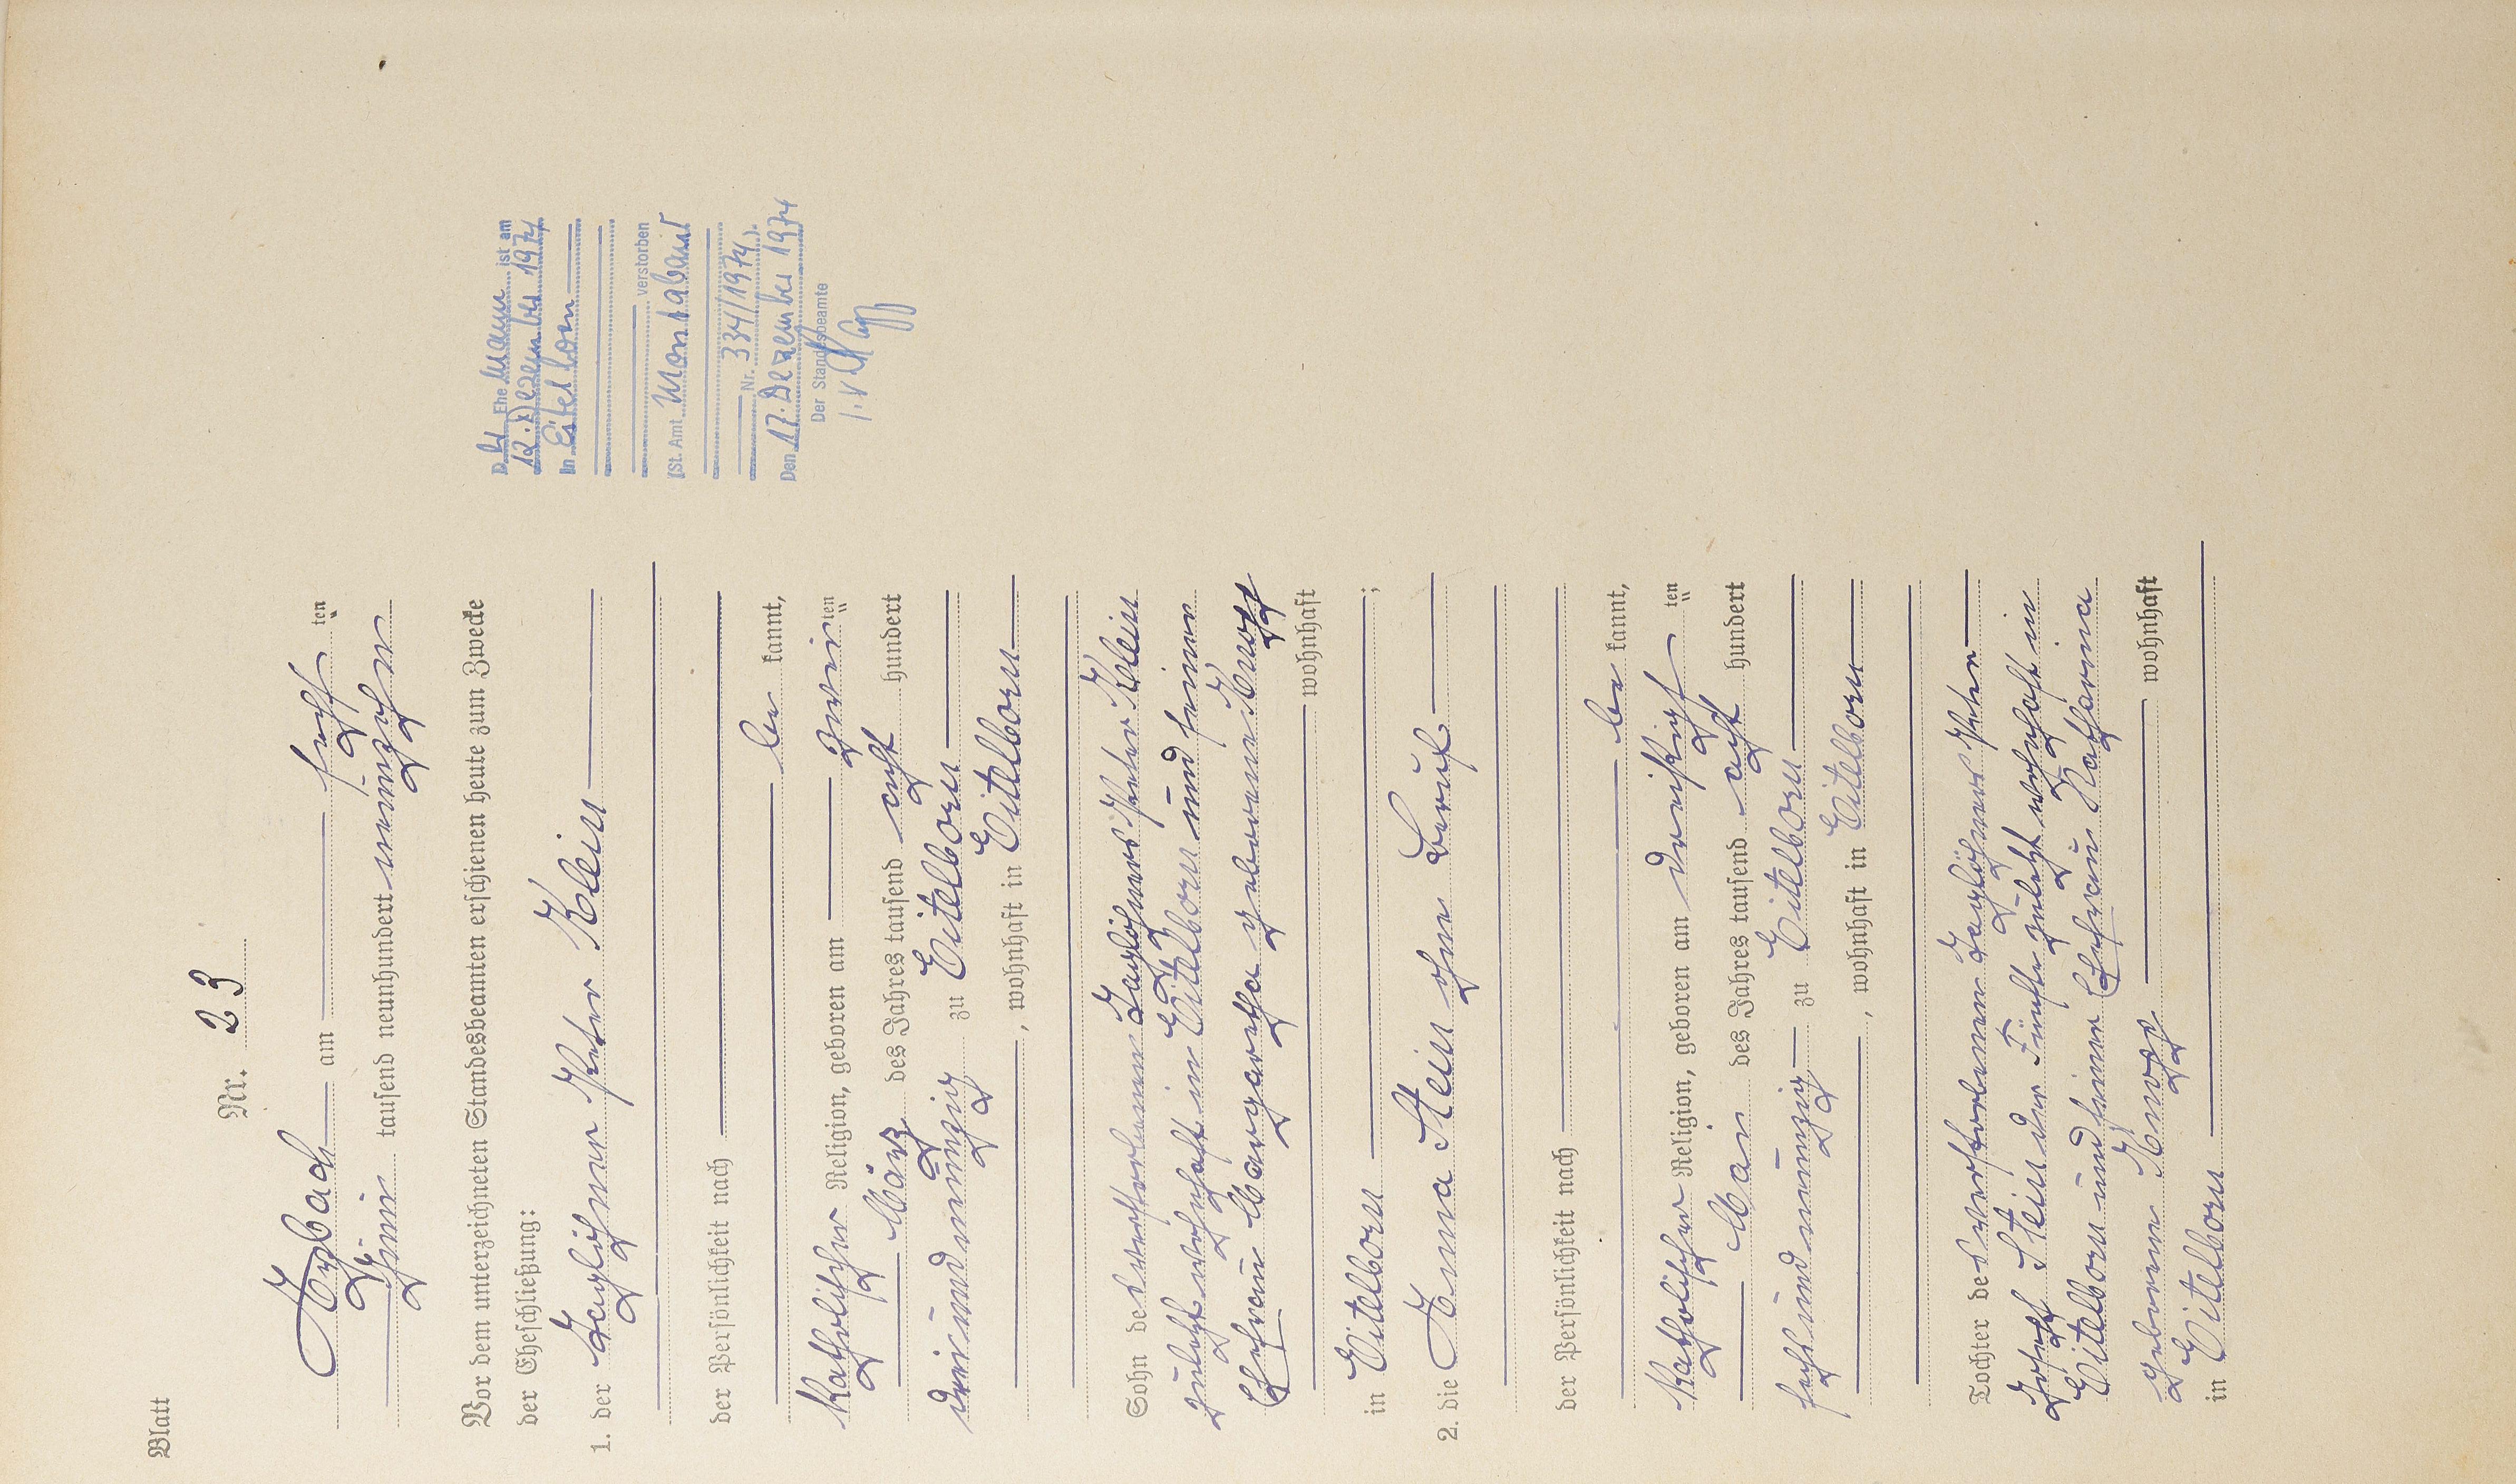 Blatt
Nr. 23
Arzbach am sechsten
Juni tausend neunhundert neunzehn
Vor dem unterzeichneten Standesbeamten erschienen heute zum Zwecke
der Eheschließung:
1. der Taglöhner Peter Klein
der Persönlichkeit nach
be kannt,
katholischer Religion, geboren am zweiten
März des Jahres tausend acht hundert
dreiundneunzig zu Eitelborn
, wohnhaft in Eitelborn
Sohn des verstorbenen Taglöhners Peter Klein
zuletzt wohnhaft in Eitelborn und seiner
Ehefrau Margaretha geborene Knopp
wohnhaft
in Eitelborn ;
2. die Anna Stein ohne Beruf
der Persönlichkeit nach
be kannt,
katholischer Religion, geboren am dreißigsten
Mai des Jahres tausend acht hundert
sechsundneunzig zu Eitelborn
, wohnhaft in Eitelborn
Tochter des verstorbenen Taglöhners Peter
Josef Stein der Fünfte zuletzt wohnhaft in
Eitelborn und seiner Ehefrau Katharina
geborene Knopp wohnhaft
in Eitelborn
Der Ehe Mann ist am
12. Dezember 1974
in Eitelborn
verstorben
(St. Amt Montabaur
Nr. 334/1974).
Den 17. Dezember 1974
Der Standesbeamte
i.V.